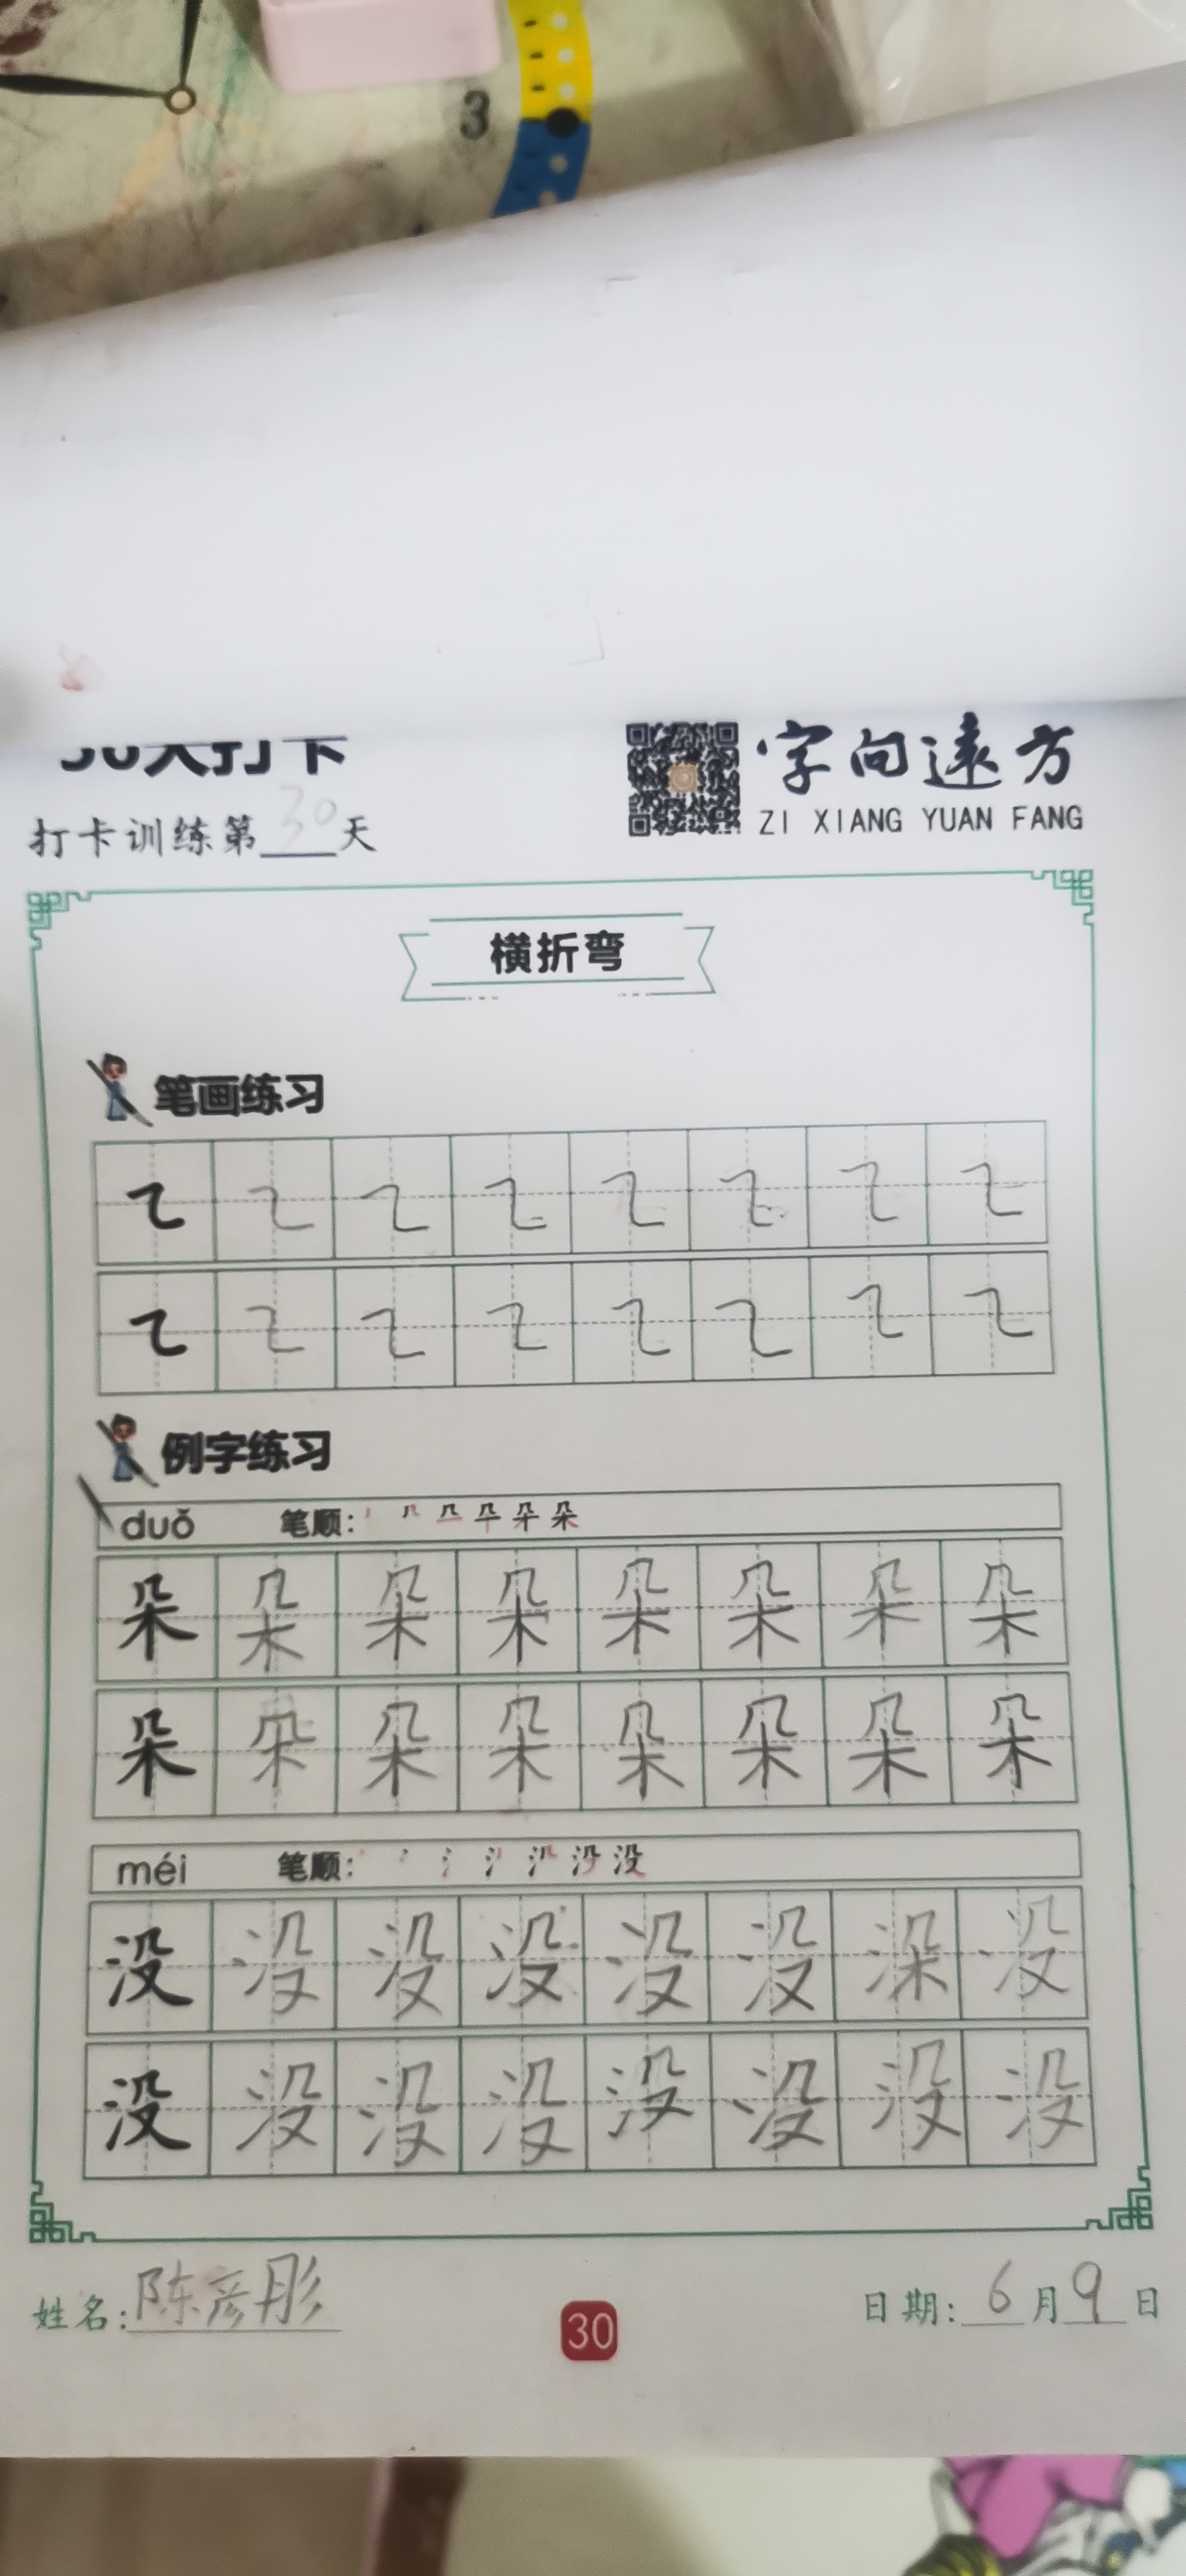 3
30天打卡
字向遠方
ZI XIANG YUAN FANG
打卡训练第30天
横折弯
笔画练习
例字练习
duǒ 笔顺:
朵 朵 朵 朵 朵 朵 朵 朵
朵 朵 朵 朵 朵 朵 朵 朵
méi 笔顺: 没
没 没 没 没 没 没 深 没
没 没 没 没 没 没 没 没
姓名:陈彦彤
30
日期:6月9日